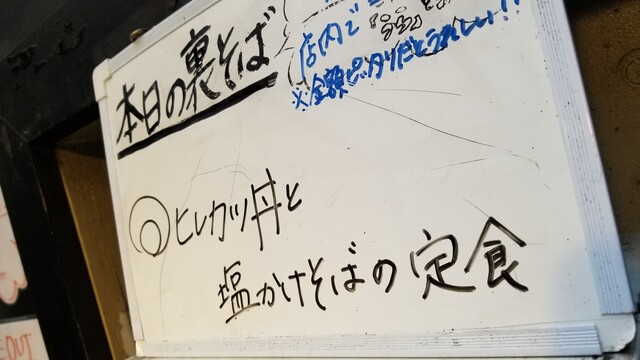 本日の裏そば
店内で
※金額ピッタリだとうれしい!!
◎ヒレカツ丼と
塩かけそばの定食
OUT